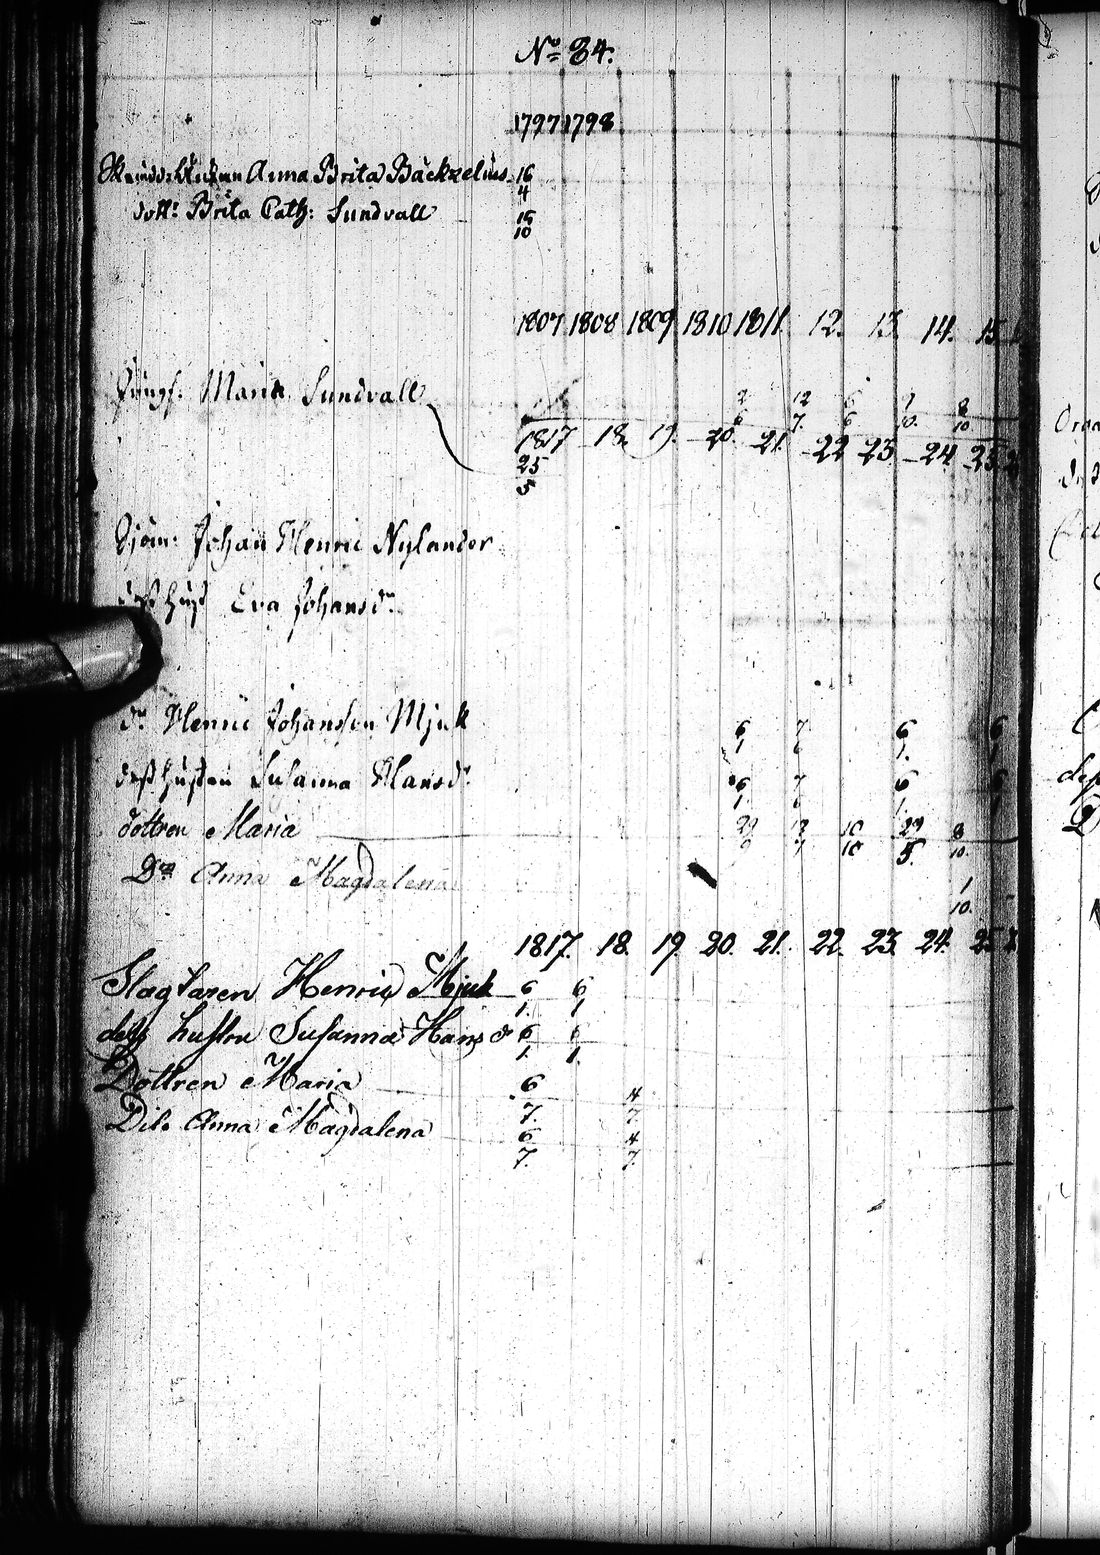 No 84.
1797 1798
Anna Brita Bäckzelius 16
4
dottr: Brita Cath: Sundvall 15
10
1807 1808 1809 1810 1811. 12. 13. 14. 15.
Jungf: Maria Sundvall 12 8
7. 6 10. 10.
1817 18. 19. 20. 21. 22 23. 24. 25
25
5
Sjöm: Johan Henric Nylander
deß hust Eva Johansdr
do Henric Johansson Mjuk 6 7 6 6
1 6 1. 1
deß hustru Susanna Hansdr 6 7 6 6
1 6 1 1
dottren Maria 29 12 10 29 8
7 10 5. 10.
Do Anna Magdalena 1
10.
1817. 18. 19. 20. 21. 22. 23. 24. 25
Slagtaren Henric Mjuk 6 6
1. 1
deß hustru Susanna Hansd 6 6
1. 1.
Dottren Maria 6 4
7. 7.
Dito Anna Magdalena 6 4
7. 7.